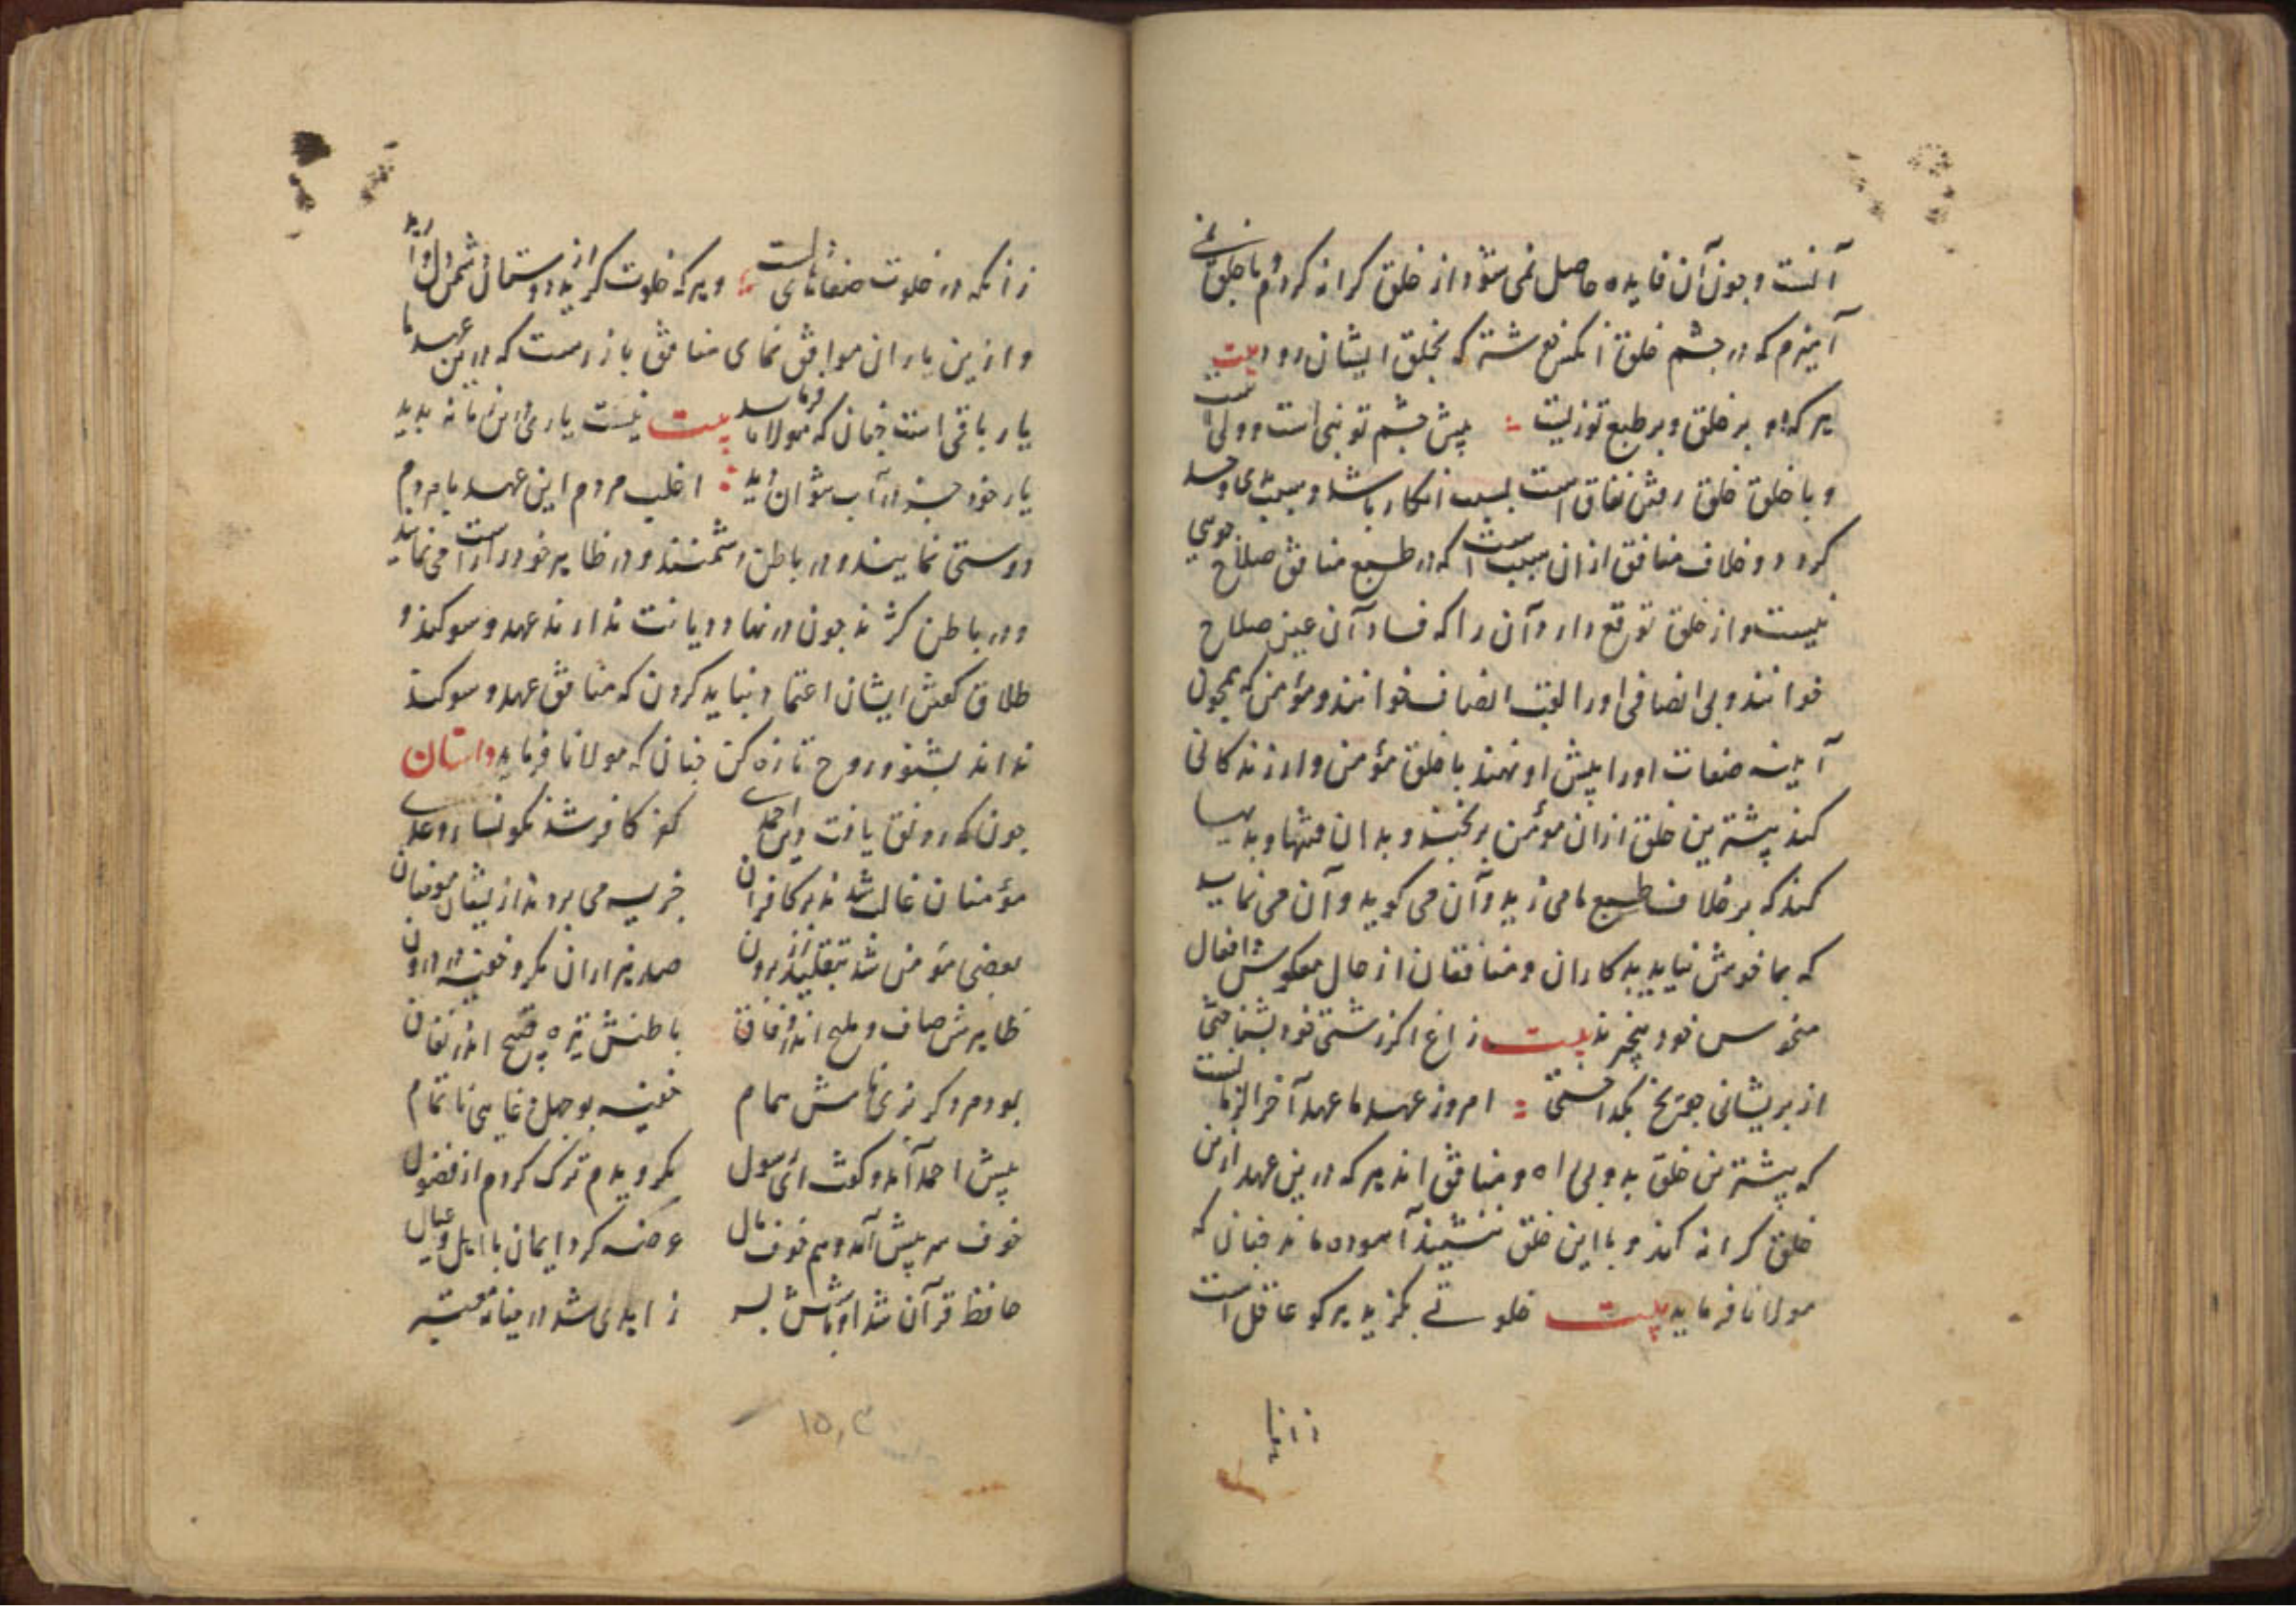 آنست و چون آن فایده حاصل نمی شود از خلق کرانه کردم و با خلق
آمیزم که در چشم خلق آنکس فرشته که بخلق ایشان رود بیت
هر که او بر خلق و بر طبع تو زیست پیش چشم تو نبی است و ولی است
و با خلق خلق رفتن نفاق است بسبب انکار باشد و سبب
کردد و خلاف منافق ازان سبب است که در طبع منافق صلاح جویی
نیست و از خلق توقع دارد آن را که فساد آن عین صلاح
خوانند و بی انصافی او را لقب انصاف خوانند و مؤمن که همچون
آینه صفات او را پیش او نهند با خلق مؤمن وار زندکانی
کند پیشترین خلق ازان مؤمن برنجند و بدان
کند که بر خلاف طبع ما می زید و آن می کوید و آن می نماید
که بما خوش نیاید بدکاران و منافقان از حال معکوس افعال
منحوس خود بیخبرند بیت زاغ اکر زشتی خود بشناختی
از پریشانی چو یخ بکداختی امروز عهد ما عهد آخر الزمانست
که پیشترین خلق بد و بی راه و منافق اند هر که درین عهد ازین
خلق کرانه کند و با این خلق ننشیند آسوده ماند چنان که
مولانا فرماید بیت خلوتی بکزید هر کو عاقل است
زانکه در خلوت صفاهای و هر که خلوت کزیند از دوستان دشمن
و ازین یاران موافق نمای منافق باز رست که درین عهد ما
یار باقی است چنان که مولانا فرماید بیت نیست یاری این زمانه بدید
یار خود جز در آب نتوان دید اغلب مردم این عهد با مردم
دوستی نمایند و در باطن دشمنند و در ظاهر خود را راست می نمایند
و در باطن کژند چون در نهاد دیانت ندارند عهد و سوکند و
طلاق کفتن ایشان اعتماد نباید کردن که منافق عهد و سوکند
نداند بشنو و روح تازه کن چنان که مولانا فرماید داستان
چون که رونق یافت دین احمدی کفر کافر شد نکونسار و عدی
مؤمنان غالب شدند بر کافران جزیه می بردند ازیشان مؤمنان
بعضی مؤمن شد بتقلید از برون صد هزاران مکر و خفیه در درون
ظاهرش صاف و ملیح اندر وفاق باطنش تیره قبیح اندر نفاق
بود مردکی نامش همام خفیه بوجهل و نا تمام
پیش احمد آمد و کفت ای رسول بکرویدم ترک کردم از فضول
خوف سر پیش آمد و هم خوف مال عرضه کرد ایمان با اهل و عیال
حافظ قرآن شد
زانکه
۱۵۰۳